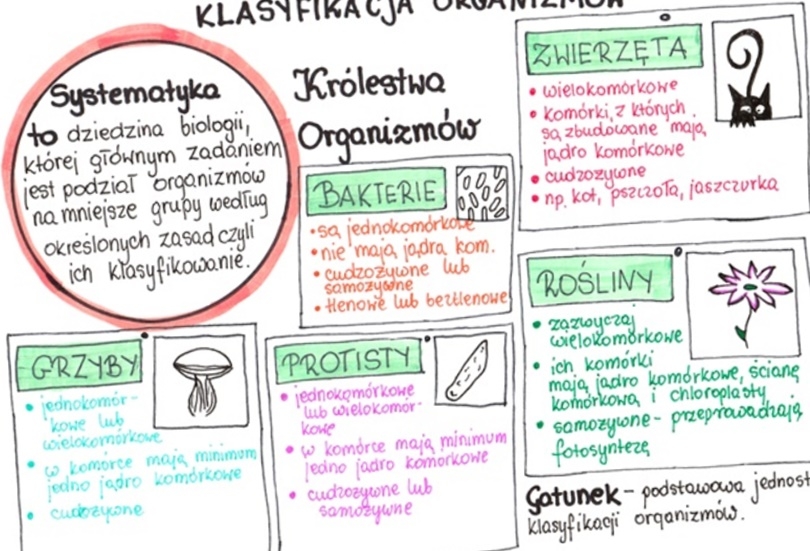 KLASYFIKACJA ORGANIZMÓW
Systematyka
to dziedzina biologii,
której głównym zadaniem
jest podział organizmów
na mniejsze grupy według
określonych zasad czyli
ich klasyfikowanie.
Królestwa
Organizmów
BAKTERIE
• są jednokomórkowe
• nie mają jądra kom.
• cudzożywne lub
samożywne
• tlenowe lub beztlenowe
ZWIERZĘTA
• wielokomórkowe
• komórki, z których
są zbudowane mają
jądro komórkowe
• cudzożywne
• np. kot, pszczoła, jaszczurka
ROŚLINY
• zazwyczaj
wielokomórkowe
• ich komórki
mają jądro komórkowe, ścianę
komórkową i chloroplasty
• samożywne - przeprowadzają
fotosyntezę
GRZYBY
• jednokomór-
kowe lub
wielokomórkowe
• w komórce mają minimum
jedno jądro komórkowe
• cudzożywne
PROTISTY
• jednokomórkowe
lub wielokomór-
kowe
• w komórce mają minimum
jedno jądro komórkowe
• cudzożywne lub
samożywne
Gatunek - podstawowa jednost
klasyfikacji organizmów.